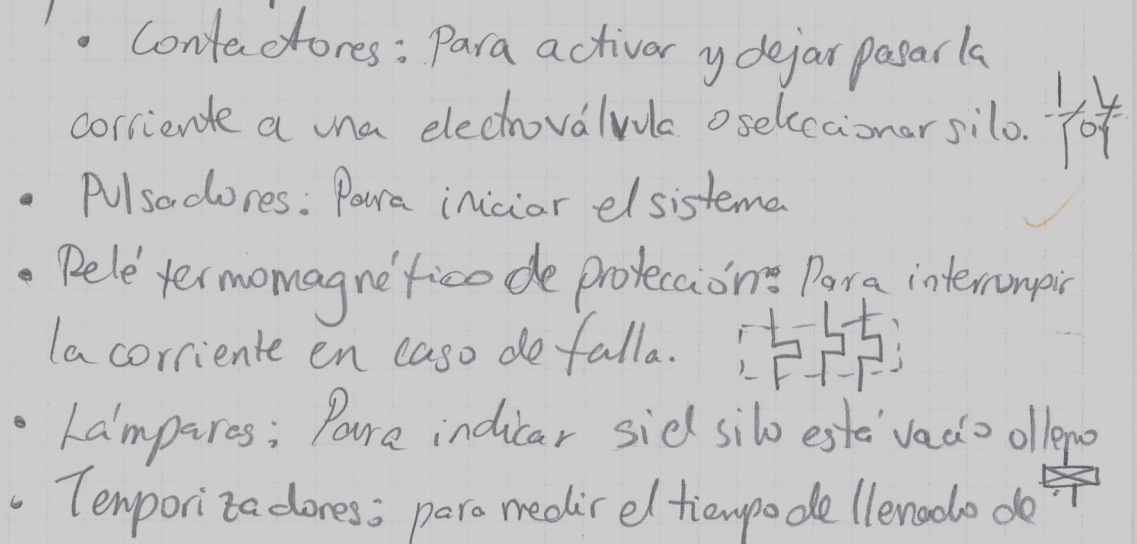 • Contactores: Para activar y dejar pasar la
corriente a una electroválvula o seleccionar silo.
• Pulsadores: Para iniciar el sistema
• Relé termomagnético de protección: Para interrumpir
la corriente en caso de falla.
• Lámparas: Para indicar si el silo está vacío o lleno
• Temporizadores: para medir el tiempo de llenado de